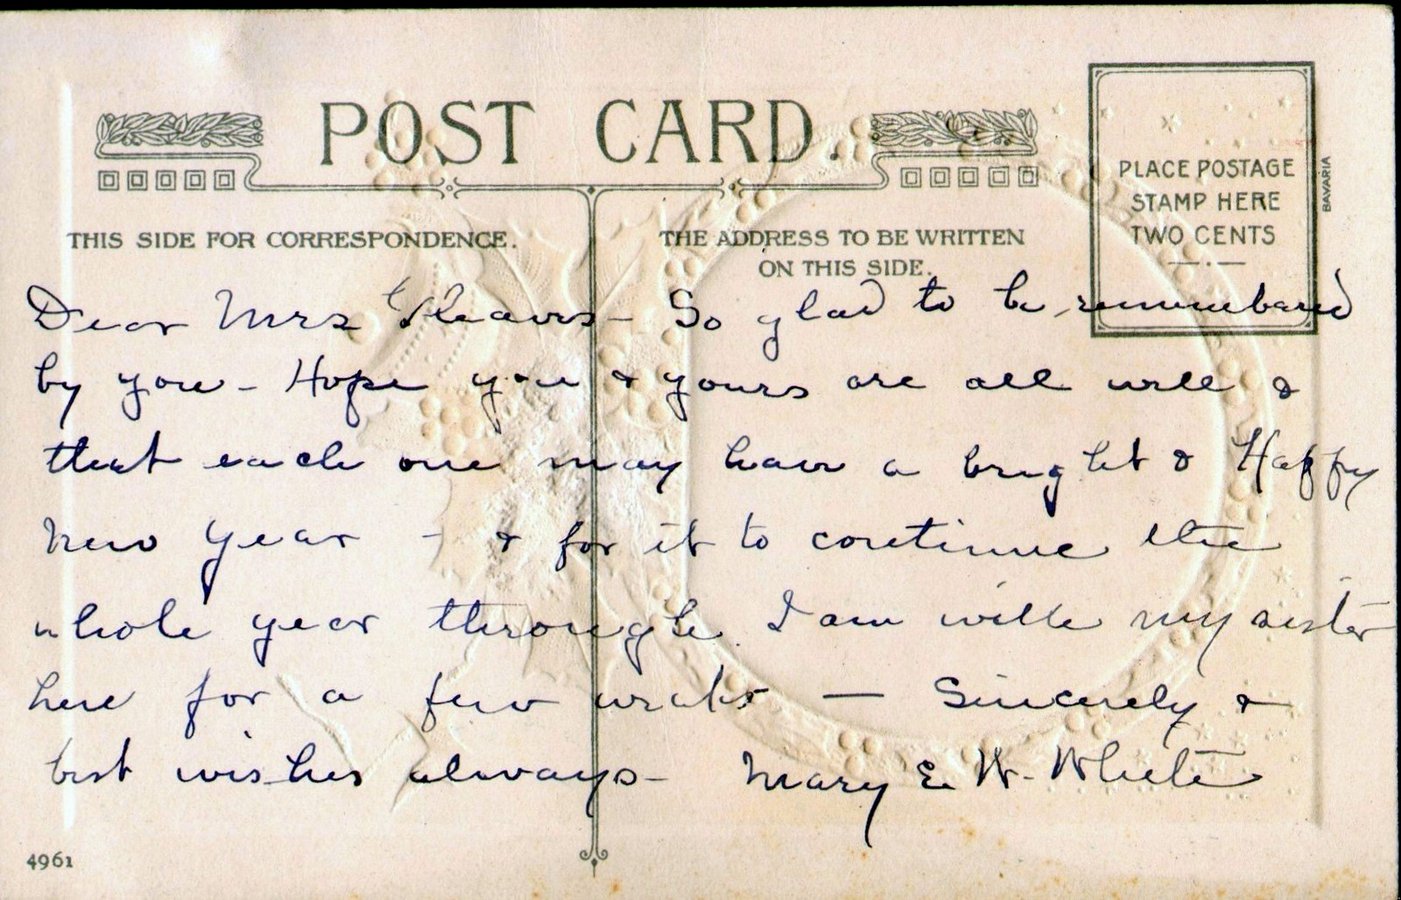 POST CARD.
PLACE POSTAGE
STAMP HERE
TWO CENTS
BAVARIA
THIS SIDE FOR CORRESPONDENCE.
THE ADDRESS TO BE WRITTEN
ON THIS SIDE.
Dear Mrs - So glad to be remembered
by you - Hope you & yours are all well &
that each one may have a bright & Happy
New Year - & for it to continue the
whole year through. I am with my sister
here for a few weeks — Sincerely &
best wishes always - Mary E. W. White
4961